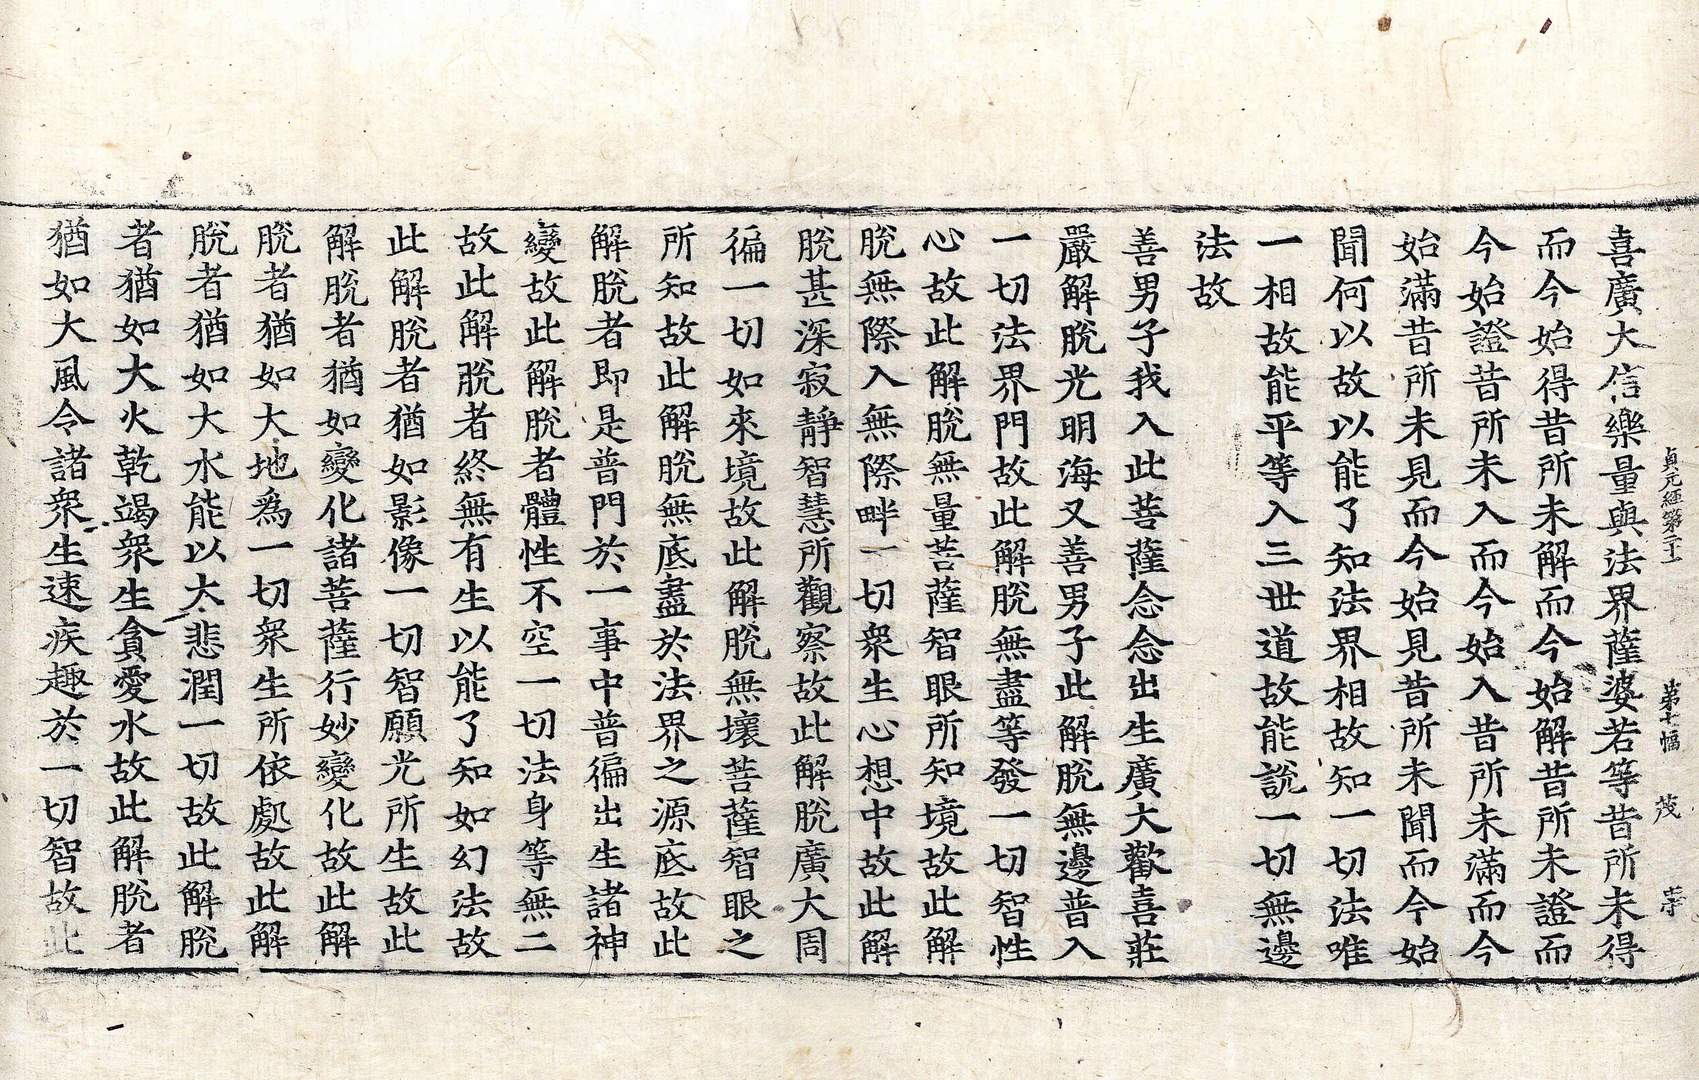 貞元經第二十一　第七幅　茂　
喜廣大信樂量與法界薩婆若等昔所未得
而今始得昔所未解而今始解昔所未證而
今始證昔所未入而今始入昔所未滿而今
始滿昔所未見而今始見昔所未聞而今始
聞何以故以能了知法界相故知一切法唯
一相故能平等入三世道故能説一切無邊
法故
善男子我入此菩薩念念出生廣大歡喜莊
嚴解脫光明海又善男子此解脫無邊普入
一切法界門故此解脫無盡等發一切智性
心故此解脫無量菩薩智眼所知境故此解
脫無際入無際畔一切衆生心想中故此解
脫甚深寂靜智慧所觀察故此解脫廣大周
徧一切如來境故此解脫無壞菩薩智眼之
所知故此解脫無底盡於法界之源底故此
解脫者即是普門於一事中普徧出生諸神
變故此解脫者體性不空一切法身等無二
故此解脫者終無有生以能了知如幻法故
此解脫者猶如影像一切智願光所生故此
解脫者猶如變化諸菩薩行妙變化故此解
脫者猶如大地為一切衆生所依處故此解
脫者猶如大水能以大悲潤一切故此解脫
者猶如大火乾竭衆生貪愛水故此解脫者
猶如大風令諸衆生速疾趣於一切智故此